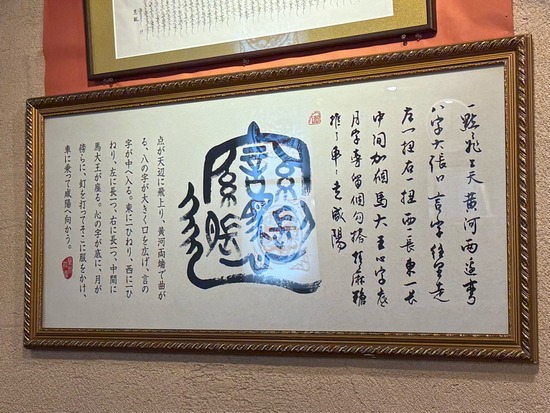 一點飛上天黄河両邊彎
八字大張口言字往里走
左一扭右一扭西一長東一長
中間加個馬大王心字底
月字旁留個勾搭掛麻糖
推了車走咸陽
𰻞
点が天辺に飛上り、黄河両端で曲が
る、八の字が大きく口を広げ、言の
字が中へ入る。東に一ひねり、西に一ひ
ねり、左に長一つ、右に長一つ、中間に
馬大王が座る。心の字が底に、月が
傍らに、釘を打ってそこに服をかけ、
車に乗って咸陽へ向かう。